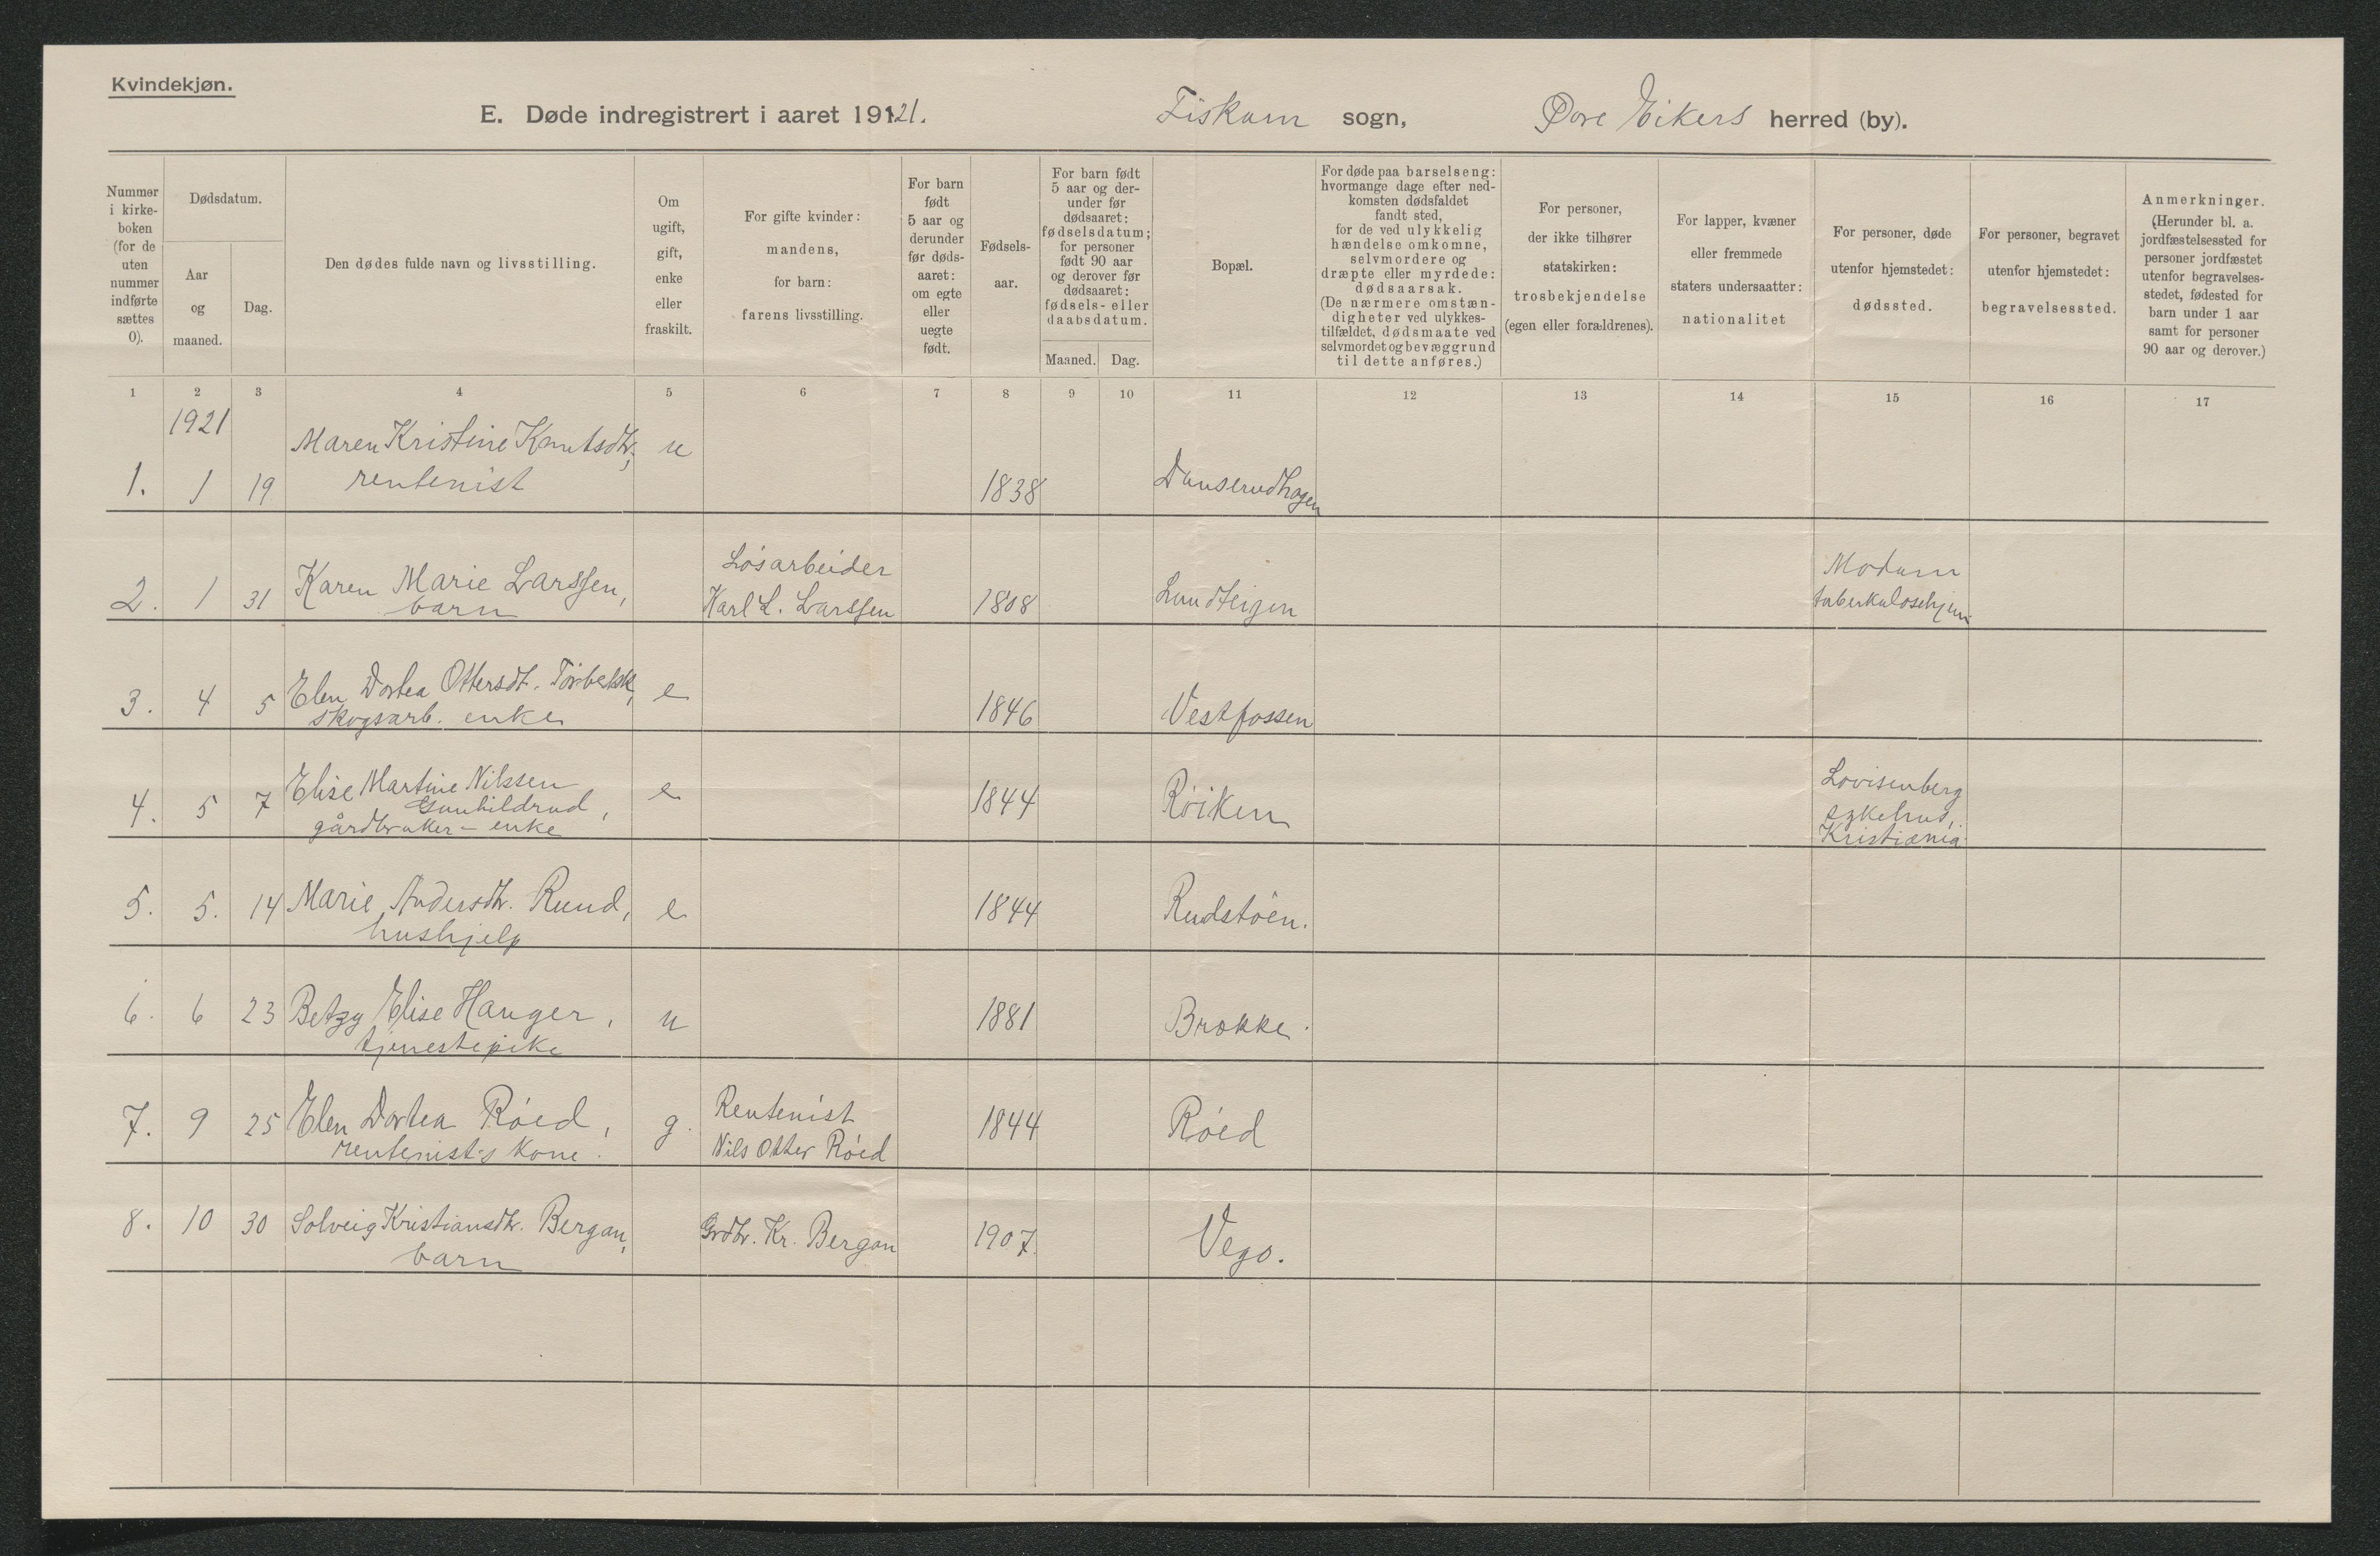 Kvindekjøn.
E. Døde indregistrert i aaret 19121. Fiskum sogn, Øvre Eikers herred (by).
Nummer i kirke-boken (for de uten nummer indførte sættes 0).
Dødsdatum.
Aar og maaned.
Dag.
Den dødes fulde navn og livsstilling.
Om ugift, gift, enke eller fraskilt.
For gifte kvinder: mandens, for barn: farens livsstilling.
For barn født 5 aar og derunder før døds-aaret: om egte eller uegte født.
Fødsels-aar.
For barn født 5 aar og der-under før dødsaaret: fødselsdatum; for personer født 90 aar og derover før dødsaaret: fødsels- eller daabsdatum.
Maaned. Dag.
Bopæl.
For døde paa barselseng: hvormange dage efter ned-komsten dødsfaldet fandt sted, for de ved ulykkelig hændelse omkomne, selvmordere og dræpte eller myrdede: dødsaarsak. (De nærmere omstæn-digheter ved ulykkes-tilfældet, dødsmaate ved selvmordet og bevæggrund til dette anføres.)
For personer, der ikke tilhører statskirken: trosbekjendelse (egen eller forældrenes).
For lapper, kvæner eller fremmede staters undersaatter: nationalitet
For personer, døde utenfor hjemstedet: dødssted.
For personer, begravet utenfor hjemstedet: begravelsessted.
Anmerkninger. (Herunder bl. a. jordfæstelsessted for personer jordfæstet utenfor begravelses-stedet, fødested for barn under 1 aar samt for personer 90 aar og derover.)
1 2 3 4 5 6 7 8 9 10 11 12 13 14 15 16 17
1921
1. 1 19 Maren Kristine Knutsdtr., rentenist u 1838 Dunserudhagen
2. 1 31 Karen Marie Larssen, barn Løsarbeider Karl L. Larssen 1808 Lundteigen Modum tuberkulosehjem
3. 4 5 Elen Dortea Ottersdt. skogsarb. enke e 1846 Vestfossen
4. 5 7 Elise Martine Nilssen Gunhildrud, gårdbruker-enke e 1844 Røiken Lovisenberg sykehus, Kristiania
5. 5. 14 Marie Andersdtr. Ruud, hushjelp e 1844 Rudstøen.
6. 6 23 Betzy Elise Hauger, tjenestepike u 1881 Brokke.
7. 9 25 Elen Dortea Røed, rentenist's kone. g. Rentenist Nils Otter Røed 1844 Røed
8. 10 30 Solveig Kristiansdtr. Bergan, barn Grdbr. Kr. Bergan 1907. Vego.